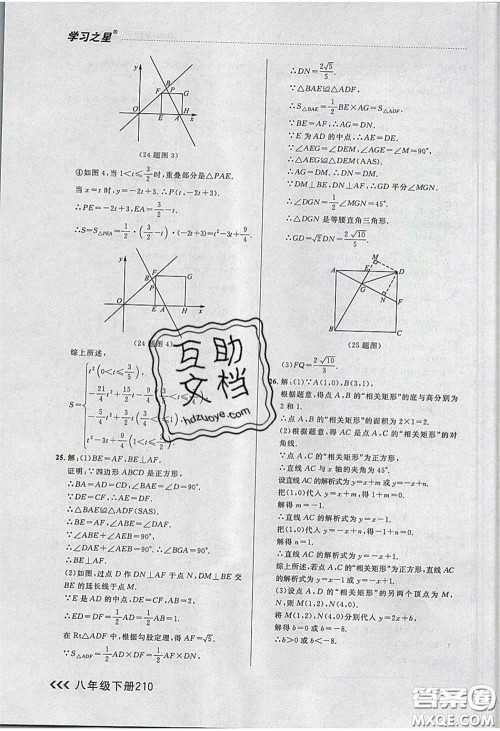 学习之星®
(24题图3)
④如图4,当1<t≤3/2时,重叠部分是△PAE.
当x=t时,y=-2t+3,∴P(t,-2t+3).
∴PE=-2t+3,AE=3/2-t.
∴S=S△PEA=1/2·(3/2-t)·(-2t+3)=t²-3t+9/4.
(24题图4)
综上所述,
S=
t²(0<t≤3/5)
t²-3t+9/4(1<t≤3/2)
25.解:(1)BE=AF,BE⊥AF.
证明:∵四边形ABCD是正方形,
∴BA=AD=CD,∠BAE=∠D=90°.
∵DE=CF,∴AE=DF.
∴△BAE≌△ADF(SAS).
∴BE=AF,∠ABE=∠DAF.
∵∠ABE+∠AEB=90°,
∴∠DAE+∠AEB=90°.∴BE⊥AF.
(2)如图,过点D作DN⊥AF于点N,DM⊥BE交
BE的延长线于点M.
∵E是AD的中点,DE=CF,AB=2,
∴AE=ED=1/2AD=1/2AB=1.
在Rt△ADF中,根据勾股定理,得AF=√5.
∵S△ADF=1/2AD×DF=1/2AF×DN,
∴DN=2√5/5.
∵△BAE≌△ADF,
∴S△BAE=1/2BE×AG=S△ADF.
∵BE=AF,∴AG=DN.
∵E为AD的中点,∴AE=DE.
∵∠AEG=∠DEM,∠AGE=∠M=90°,
∴△AEG≌△DEM(AAS).
∴AG=DM.∴DN=DM.
∵DM⊥BE,DN⊥AF,∴GD平分∠MGN.
∴∠DGN=1/2∠MGN=45°.
∴△DGN是等腰直角三角形.
∴GD=√2DN=2√10/5.
(25题图)
(3)FQ=
26.解:(1)∵A(1,0),B(3,1).
根据题意,得点A,B的“相关矩形”的底与高分别为
2和1.
∴点A,B的“相关矩形”的面积为2×1=2.
(2)根据题意,得AC是点A,C的“相关矩形”的对
角线.
∵点A,C的“相关矩形”为正方形,
∴直线AC与x轴的夹角为45°.
设直线AC的解析式为y=x+m或y=-x+n.
把(1,0)代入y=x+m,得1+m=0.
解得m=-1.
∴直线AC的解析式为y=x-1.
把(1,0)代入y=-x+n,得-1+n=0.
解得n=1.
∴直线AC的解析式为y=-x+1.
综上所述,若点A,C的“相关矩形”为正方形,直线
AC的解析式为y=x-1或y=-x+1.
(3)设点M,N的“相关矩形”的另两个顶点为M₁,
N₁,则M₁,N(4,0).
将M₁,N(4,0)分别代入y=2x+b,
解得b=0或b=-8.
∴b>0或b<-8.
互助
文档
hdzuoye.com
八年级下册210
答案圈
MXQE.COM